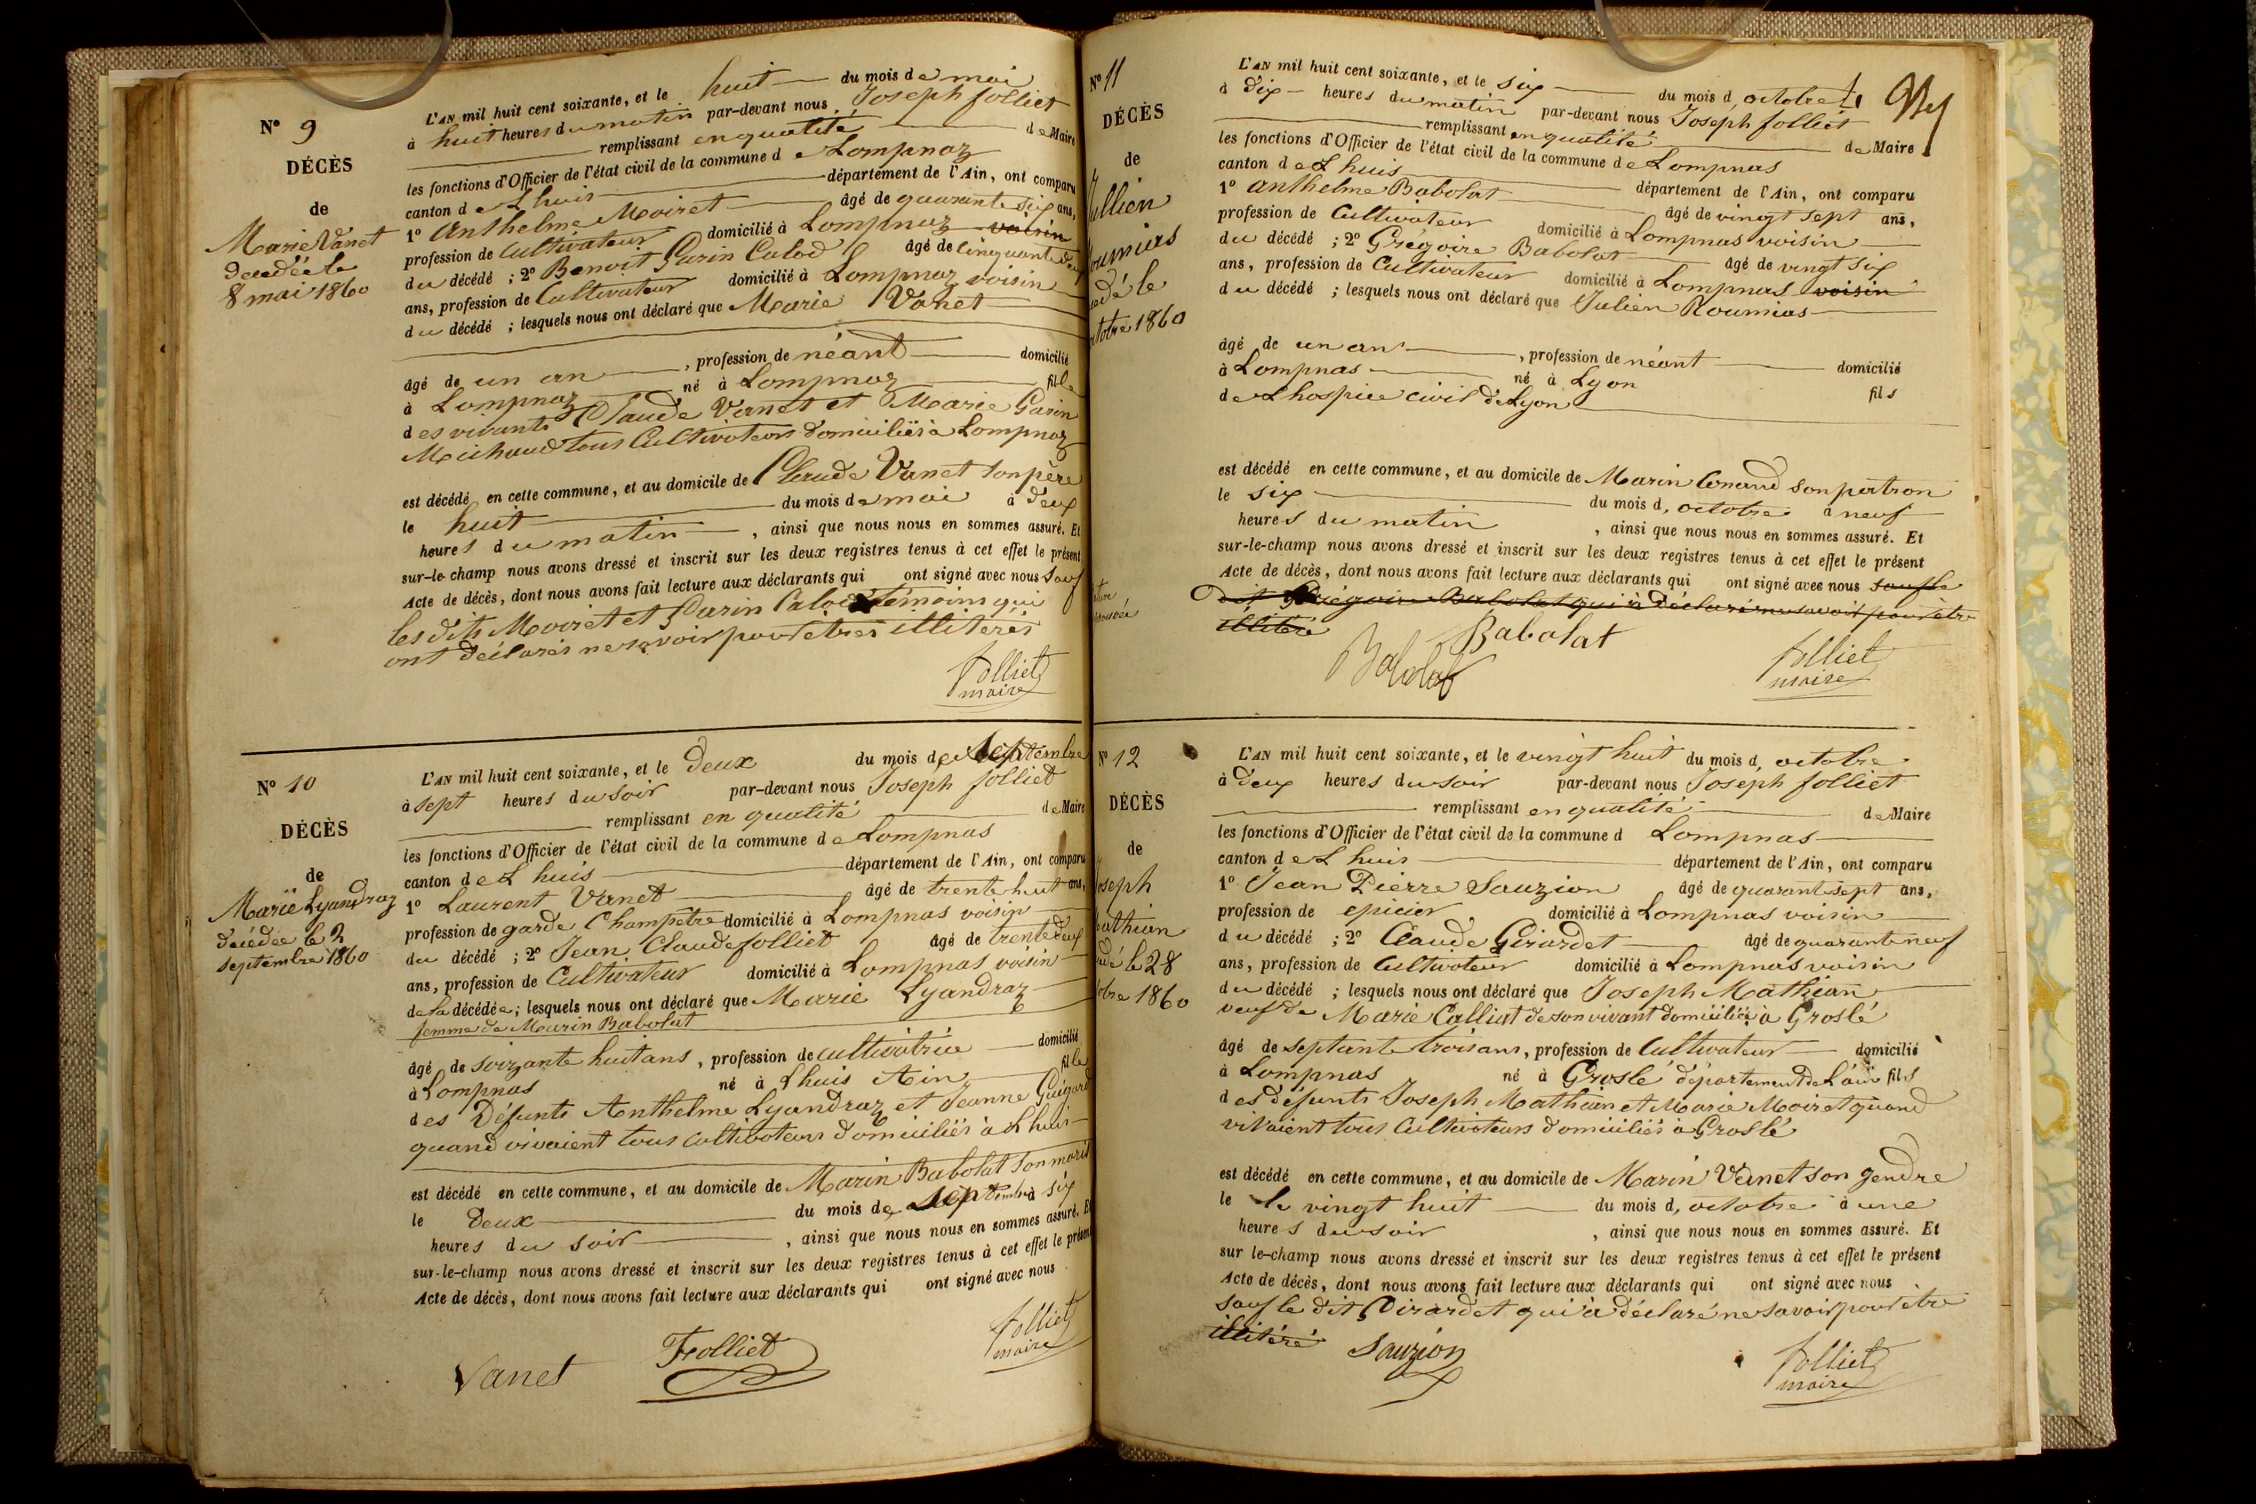 N° 9
DÉCÈS
de
Marie Vanet
décédée le
8 mai 1860
L'AN mil huit cent soixante, et le huit du mois de mai
à huit heures du matin par-devant nous Joseph folliet
remplissant en qualité de Maire
les fonctions d'Officier de l'état civil de la commune de Lompnaz
canton de Lhuis département de l'Ain, ont comparu
1° Anthelme Moiret âgé de quarante six ans,
profession de Cultivateur domicilié à Lompnaz voisin
du décédé ; 2° Benoit Garin Calod âgé de cinquante deux
ans, profession de Cultivateur domicilié à Lompnaz voisin
du décédé ; lesquels nous ont déclaré que Marie Vanet
âgé de un an , profession de néant domicilié
à Lompnaz né à Lompnaz fille
des vivants Claude Vanet et Marie Garin
Michaud tous Cultivateurs domiciliés à Lompnaz
est décédé en cette commune, et au domicile de Claude Vanet son père
le huit du mois de mai à deux
heures du matin , ainsi que nous nous en sommes assuré. Et
sur-le-champ nous avons dressé et inscrit sur les deux registres tenus à cet effet le présent
Acte de décès, dont nous avons fait lecture aux déclarants qui ont signé avec nous sauf
les dits Moiret et Garin Calod témoins qui
ont déclarés ne savoir pour etres illiterés
folliet
maire
N° 10
DÉCÈS
de
Marie Lyandraz
décédée le 2
septembre 1860
L'AN mil huit cent soixante, et le deux du mois de septembre
à sept heures du soir par-devant nous Joseph folliet
remplissant en qualité de Maire
les fonctions d'Officier de l'état civil de la commune de Lompnas
canton de Lhuis département de l'Ain, ont comparu
1° Laurent Vanet âgé de trente huit ans,
profession de garde Champetre domicilié à Lompnas voisin
du décédé ; 2° Jean Claude folliet âgé de trente deux
ans, profession de Cultivateur domicilié à Lompnas voisin
de la décédée ; lesquels nous ont déclaré que Marie Lyandraz
femme de Marin Babolat
âgé de soizante huit ans , profession de cultivatrice domicilié
à Lompnas né à Lhuis Ain fille
des Défunts Anthelme Lyandraz et Jeanne Guigard
quand vivaient tous cultivateurs domiciliés à Lhuis
est décédé en cette commune, et au domicile de Marin Babolat son marit
le deux du mois de septembre à six
heures du soir , ainsi que nous nous en sommes assuré. Et
sur-le-champ nous avons dressé et inscrit sur les deux registres tenus à cet effet le présent
Acte de décès, dont nous avons fait lecture aux déclarants qui ont signé avec nous
Vanet folliet folliet
maire
N° 11
DÉCÈS
de
Jullien
Roumias
cédé le
octobre 1860
L'AN mil huit cent soixante, et le six du mois d, octobre
à dix heures du matin par-devant nous Joseph folliet
remplissant en qualité de Maire
les fonctions d'Officier de l'état civil de la commune de Lompnas
canton de Lhuis département de l'Ain, ont comparu
1° Anthelme Babolat âgé de vingt sept ans,
profession de Cultivateur domicilié à Lompnas voisin
du décédé ; 2° Grégoire Babolat âgé de vingt six
ans, profession de Cultivateur domicilié à Lompnas voisin
du décédé ; lesquels nous ont déclaré que Julien Roumias
âgé de un an , profession de néant domicilié
à Lompnas né à Lyon fils
de Lhospice civil de Lyon
est décédé en cette commune, et au domicile de Marin Conand son patron
le six du mois d, octobre à neuf
heures du matin , ainsi que nous nous en sommes assuré. Et
sur-le-champ nous avons dressé et inscrit sur les deux registres tenus à cet effet le présent
Acte de décès, dont nous avons fait lecture aux déclarants qui ont signé avec nous sauf le
dit Grégoire Babolat qui à déclaré ne savoir pour être
illitéré
Babolat Babolat folliet
maire
N° 12
DÉCÈS
de
Joseph
Mathian
cédé le 28
tobre 1860
L'AN mil huit cent soixante, et le vingt huit du mois d, octobre
à deux heures du soir par-devant nous Joseph folliet
remplissant en qualité de Maire
les fonctions d'Officier de l'état civil de la commune d Lompnas
canton de Lhuis département de l'Ain, ont comparu
1° Jean Pierre Sauzion âgé de quarant sept ans,
profession de epicier domicilié à Lompnas voisin
du décédé ; 2° Claude Girardet âgé de quarante neuf
ans, profession de Cultivateur domicilié à Lompnas voisin
du décédé ; lesquels nous ont déclaré que Joseph Mathian
veuf de Marie Calliat de son vivant domiciliée à Groslé
âgé de septante trois ans, profession de Cultivateur domicilié
à Lompnas né à Groslé département de L'ain fils
des défunts Joseph Mathian et Marie Moiret quand
vivaient tous Cultivateurs domiciliés à Groslé
est décédé en cette commune, et au domicile de Marin Vanet son gendre
le le vingt huit du mois d, octobre à une
heures du soir , ainsi que nous nous en sommes assuré. Et
sur le-champ nous avons dressé et inscrit sur les deux registres tenus à cet effet le présent
Acte de décès, dont nous avons fait lecture aux déclarants qui ont signé avec nous
sauf le dit Girardet qui à déclaré ne savoir pour être
illitéré Sauzion folliet
maire